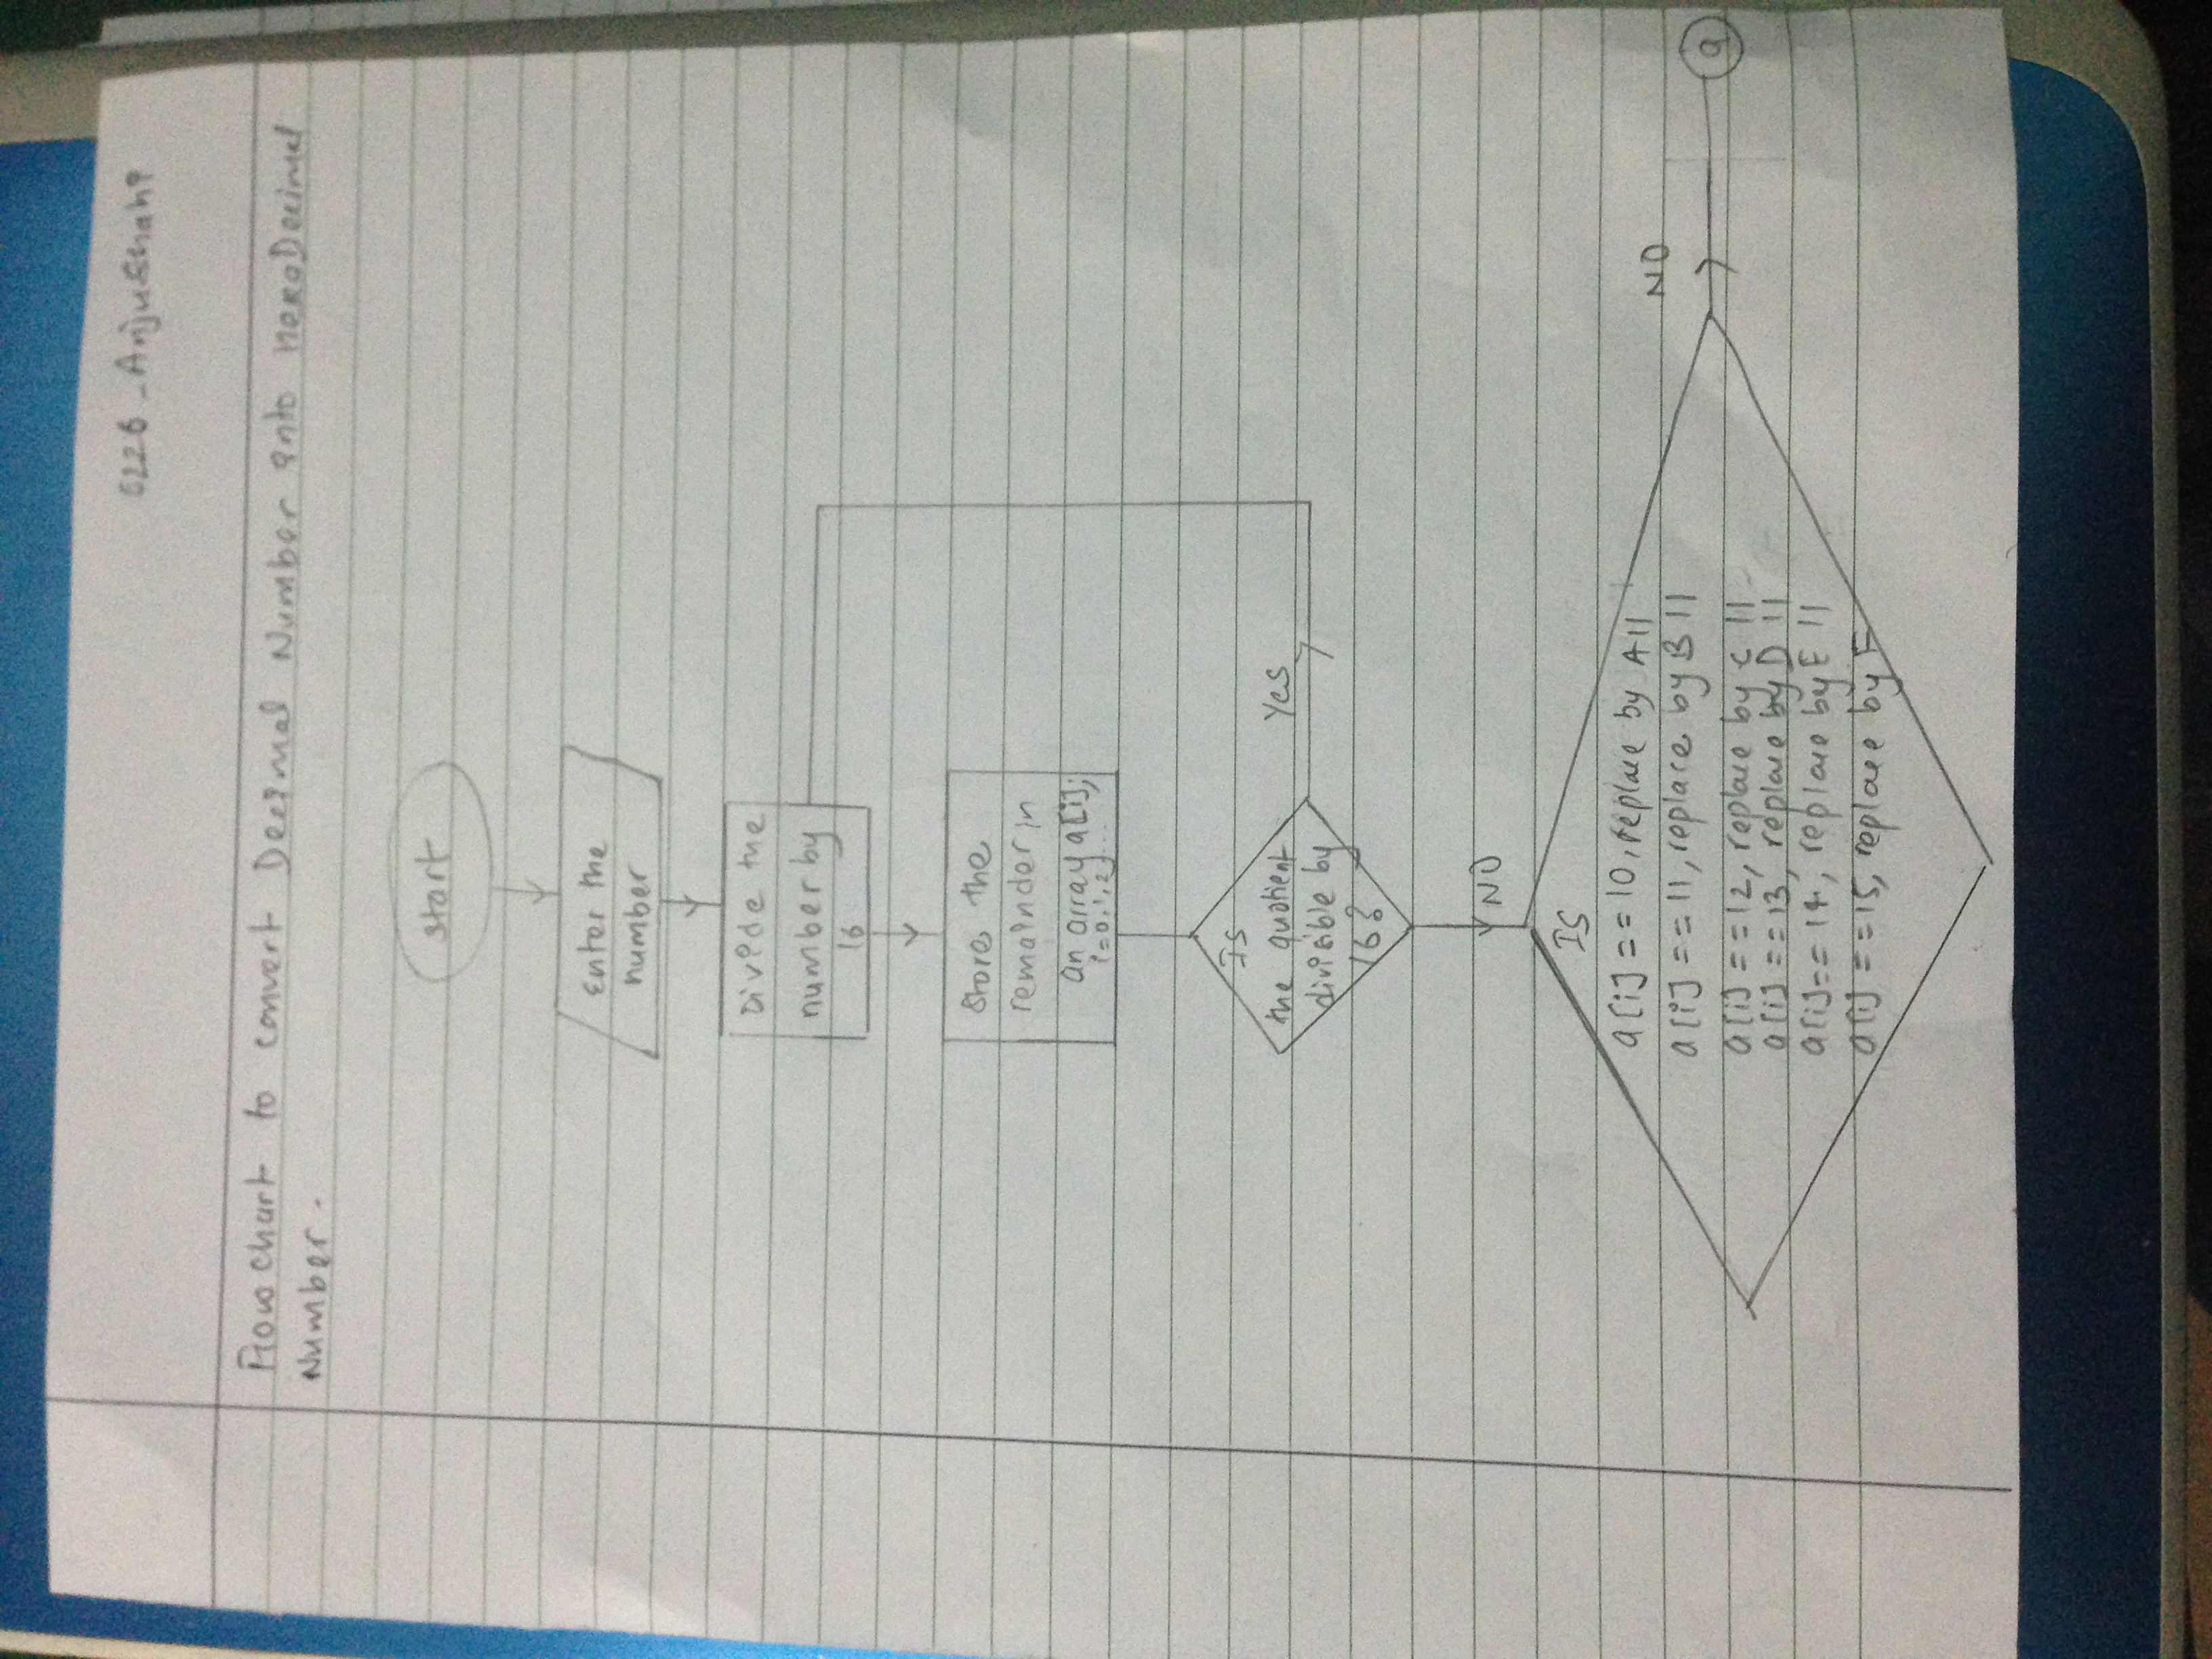 6226 - Anju Shahi
Flow chart to convert Decimal Number into HexaDecimal
Number.
start
Enter the
number
Divide the
number by
16
Store the
remainder in
an array a[i];
i=0,1,2,...
Is
the quotient
divisible by
16?
Yes
NO
IS
a[i]==10, replace by A||
a[i]==11, replace by B ||
NO
a
a[i]==12, replace by C ||
a[i]==13, replace by D ||
a[i]==14, replace by E ||
a[i]==15, replace by F